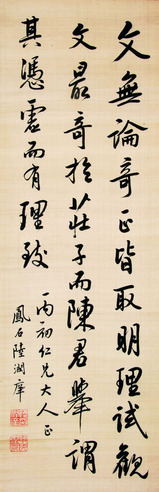 文無論奇正皆取明理試觀
文最奇於莊子而陳君舉謂
其憑虛而有理致
丙初仁兄大人正
鳳石陸潤庠